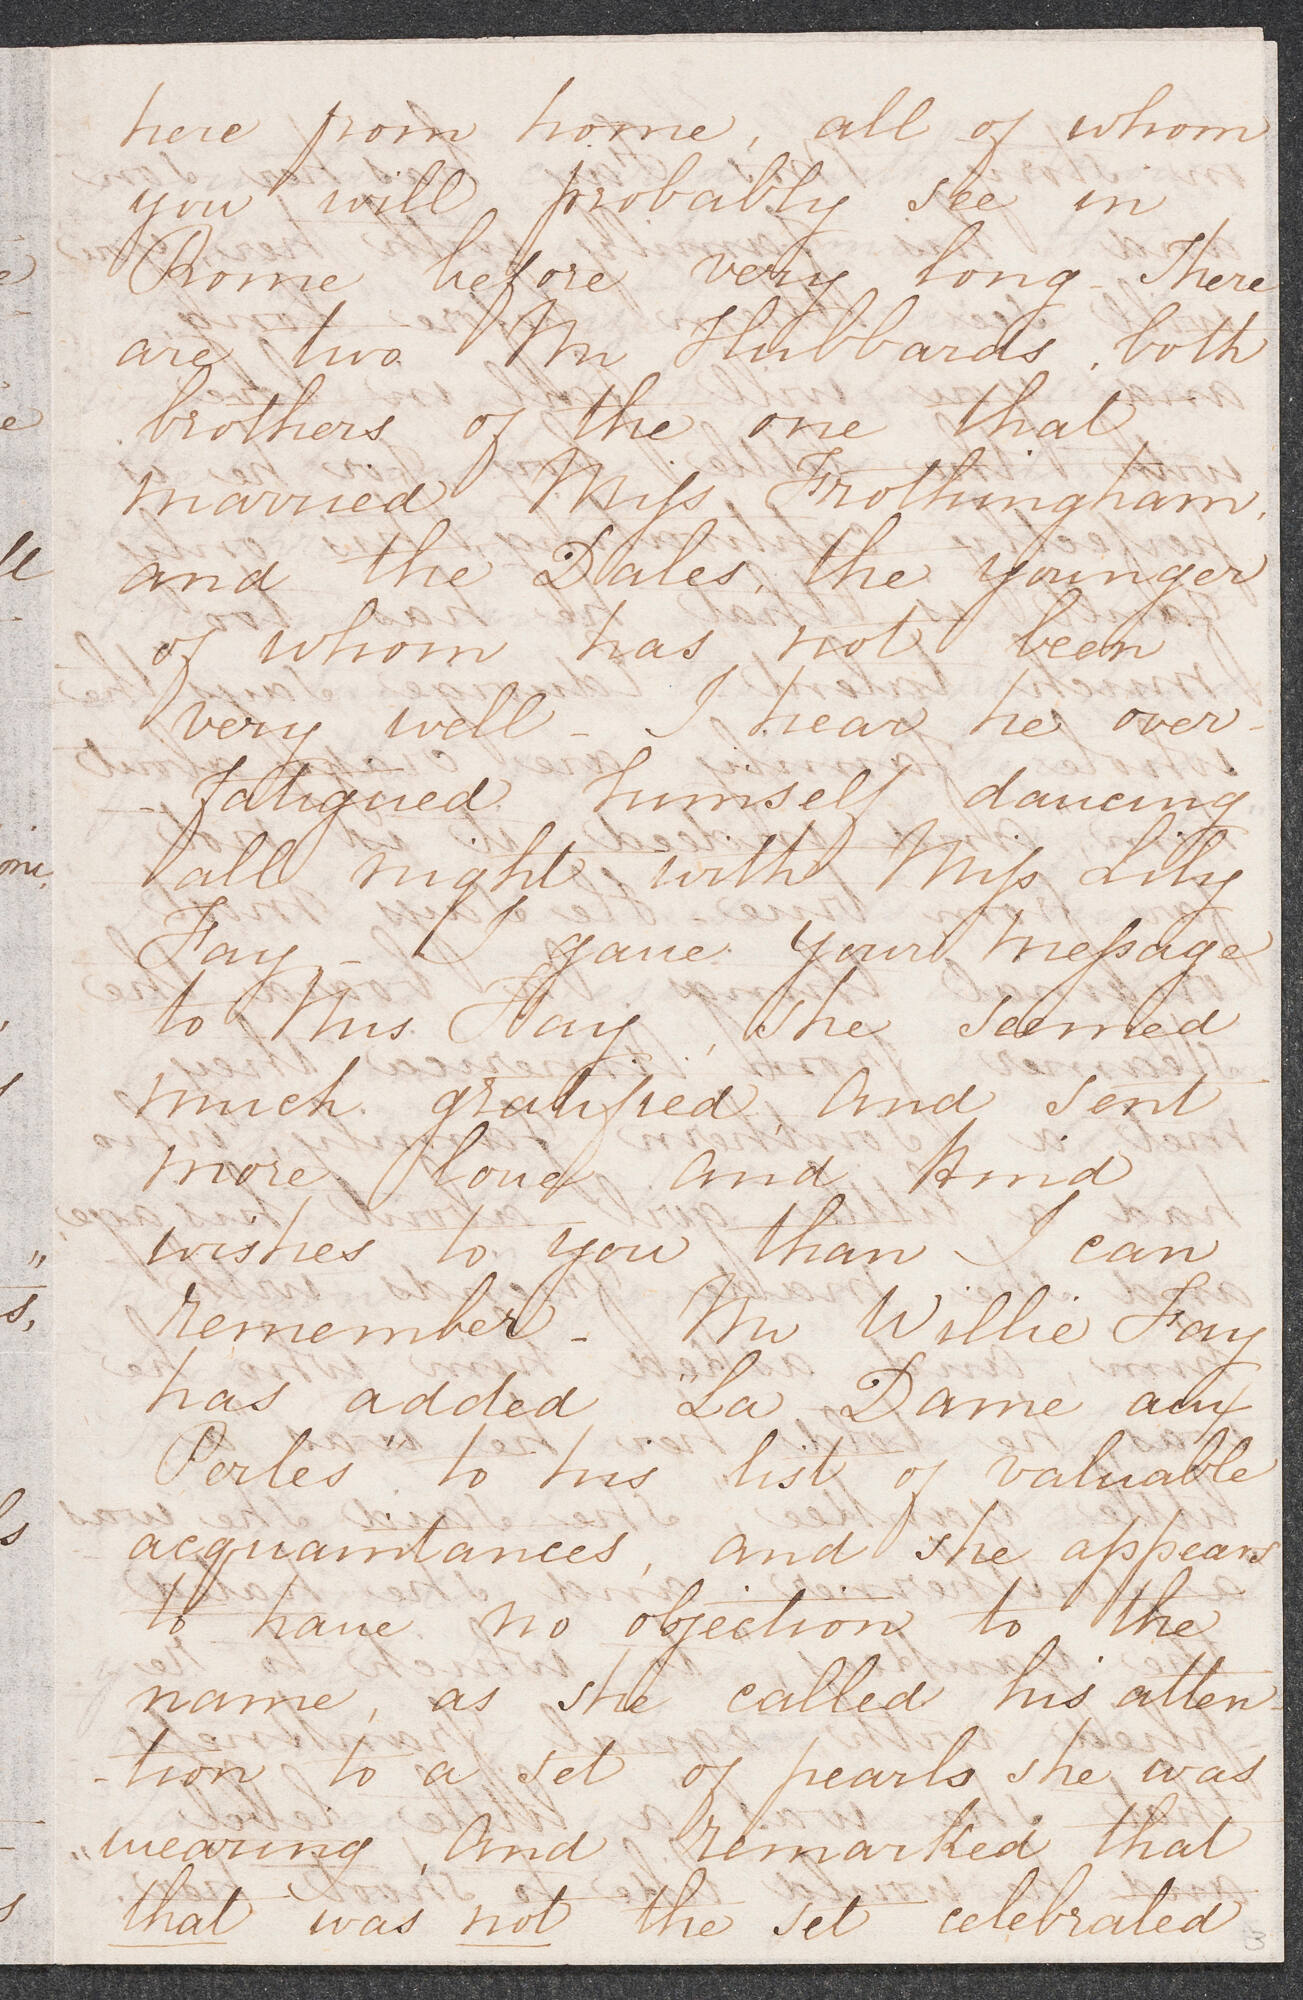 here from home, all of whom
you will probably see in
Rome before very long - There
are two Mr Hubbards, both
brothers of the one that
married Miss Frothingham,
and the Dales, the younger
of whom has not been
very well - I hear he over-
-fatigued himself dancing
all night with Miss Lily
Fay - I gave your message
to Mrs Fay, she seemed
much gratified, and sent
more love and kind
wishes to you than I can
remember - Mr Willie Fay
has added "La Dame aux
Perles" to his list of valuable
acquaintances, and she appears
to have no objection to the
name, as she called his atten-
-tion to a set of pearls she was
wearing, and remarked that
that was not the set celebrated
3